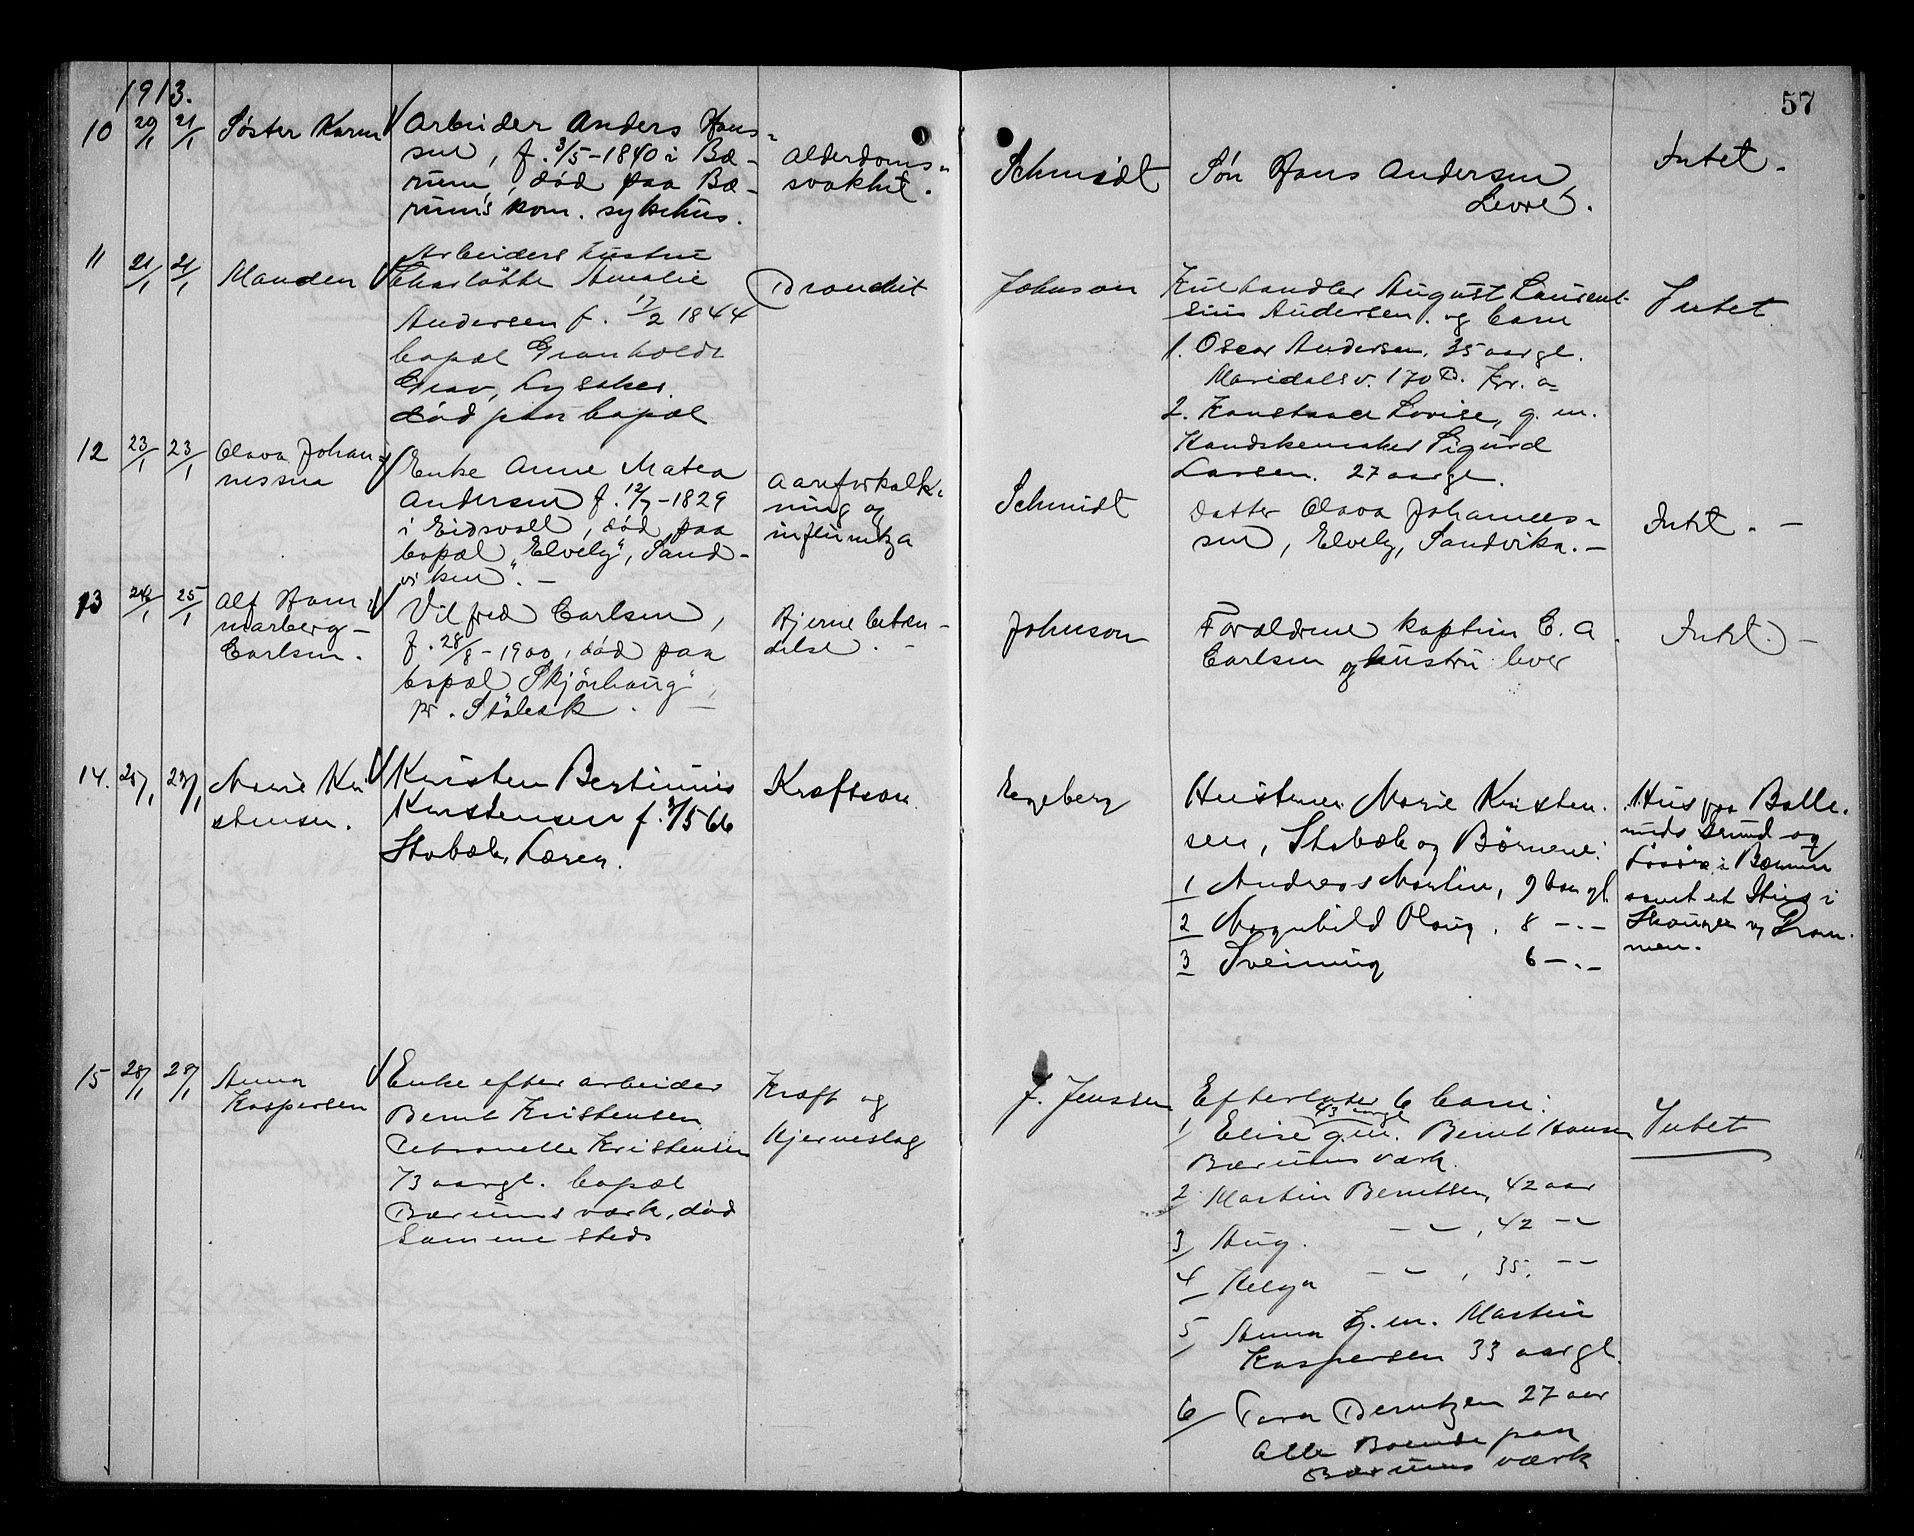 57
1913.
10 20/1 21/1 Søster Karen
Arbeider Anders Han-
sen, f. 3/5-1840 i Bæ-
rum, død paa Bæ-
rum's kom. sykehus.
Alderdoms-
svakhet.
Schmidt
Søn Hans Andersen,
Levre.
Intet.
11 21/1 21/1 Manden
Arbeiders hustru
Charlotte Amalie
Andersen f. 17/2 1844
bopæl Granholdt
Grav, Lysaker.
død paa bopæl
Bronchit
Johnson
Kulhandler August Laurent-
sius Andersen. og barn
1. Oscar Andersen. 35 aar gl.
Maridalsv. 170 B. Kr. a
2. Konstance Lovise, g. m.
Handskemaker Sigurd
Larsen. 27 aar gl.
Intet
12 23/1 23/1 Olava Johan-
nessen
Enke Anne Matea
Andersen f. 12/7-1829
i Eidsvoll, død paa
bopæl "Elvely", Sand-
viken". -
Aareforkalk-
ning og
influentza
Schmidt
Datter Olava Johannes-
sen, Elvely, Sandvika. -
Intet. -
13 24/1 25/1 Alf Ham-
marberg-
Carlsen.
Vilfred Carlsen,
f. 28/8-1900, død paa
bopæl "Skjønhaug",
pr. Stabæk.
Hjernebetæn-
delse. -
Johnson
Forældrene kaptein C. A.
Carlsen og hustru lever
Intet. -
14. 25/1 27/1 Marie Kri
stensen.
Kristen Bertinius
Kristensen f. 7/5 66
Stabæk,
Kræftsvu
Engeberg
Hustruen Marie Kristen-
sen, Stabæk og Børnene:
1 Andreas Martin, 9 aar gl
2 Magnhild Olaug, 8 -.-
3 Sveinung 6 -.-
Hus paa Balle-
ruds Grund og
Løsøre i Bærum
samt et Hus i
Skouger v/ Dram-
men.
15 28/1 29/1 Anna
Kaspersen
Enke efter arbeider
Bernt Kristensen
Petronelle Kristensen
73 aar gl. bopæl
Bærums verk, død
samme steds
Kræft og
Hjerneslag
J. Jenssen
Efterlater 6 barn:
43 aar gl
1/ Elise g.m. Bernt Hansen
Bærums værk.
2 Martin Berntsen, 42 aar
3/ Aug. - - , 42 - -
4 Helga - - , 35. - -
5/ Anna g. m. Martin
Kaspersen 33 aar gl.
6/ Tora Berntzen 27 aar
Alle Boende paa
Bærums værk
Intet